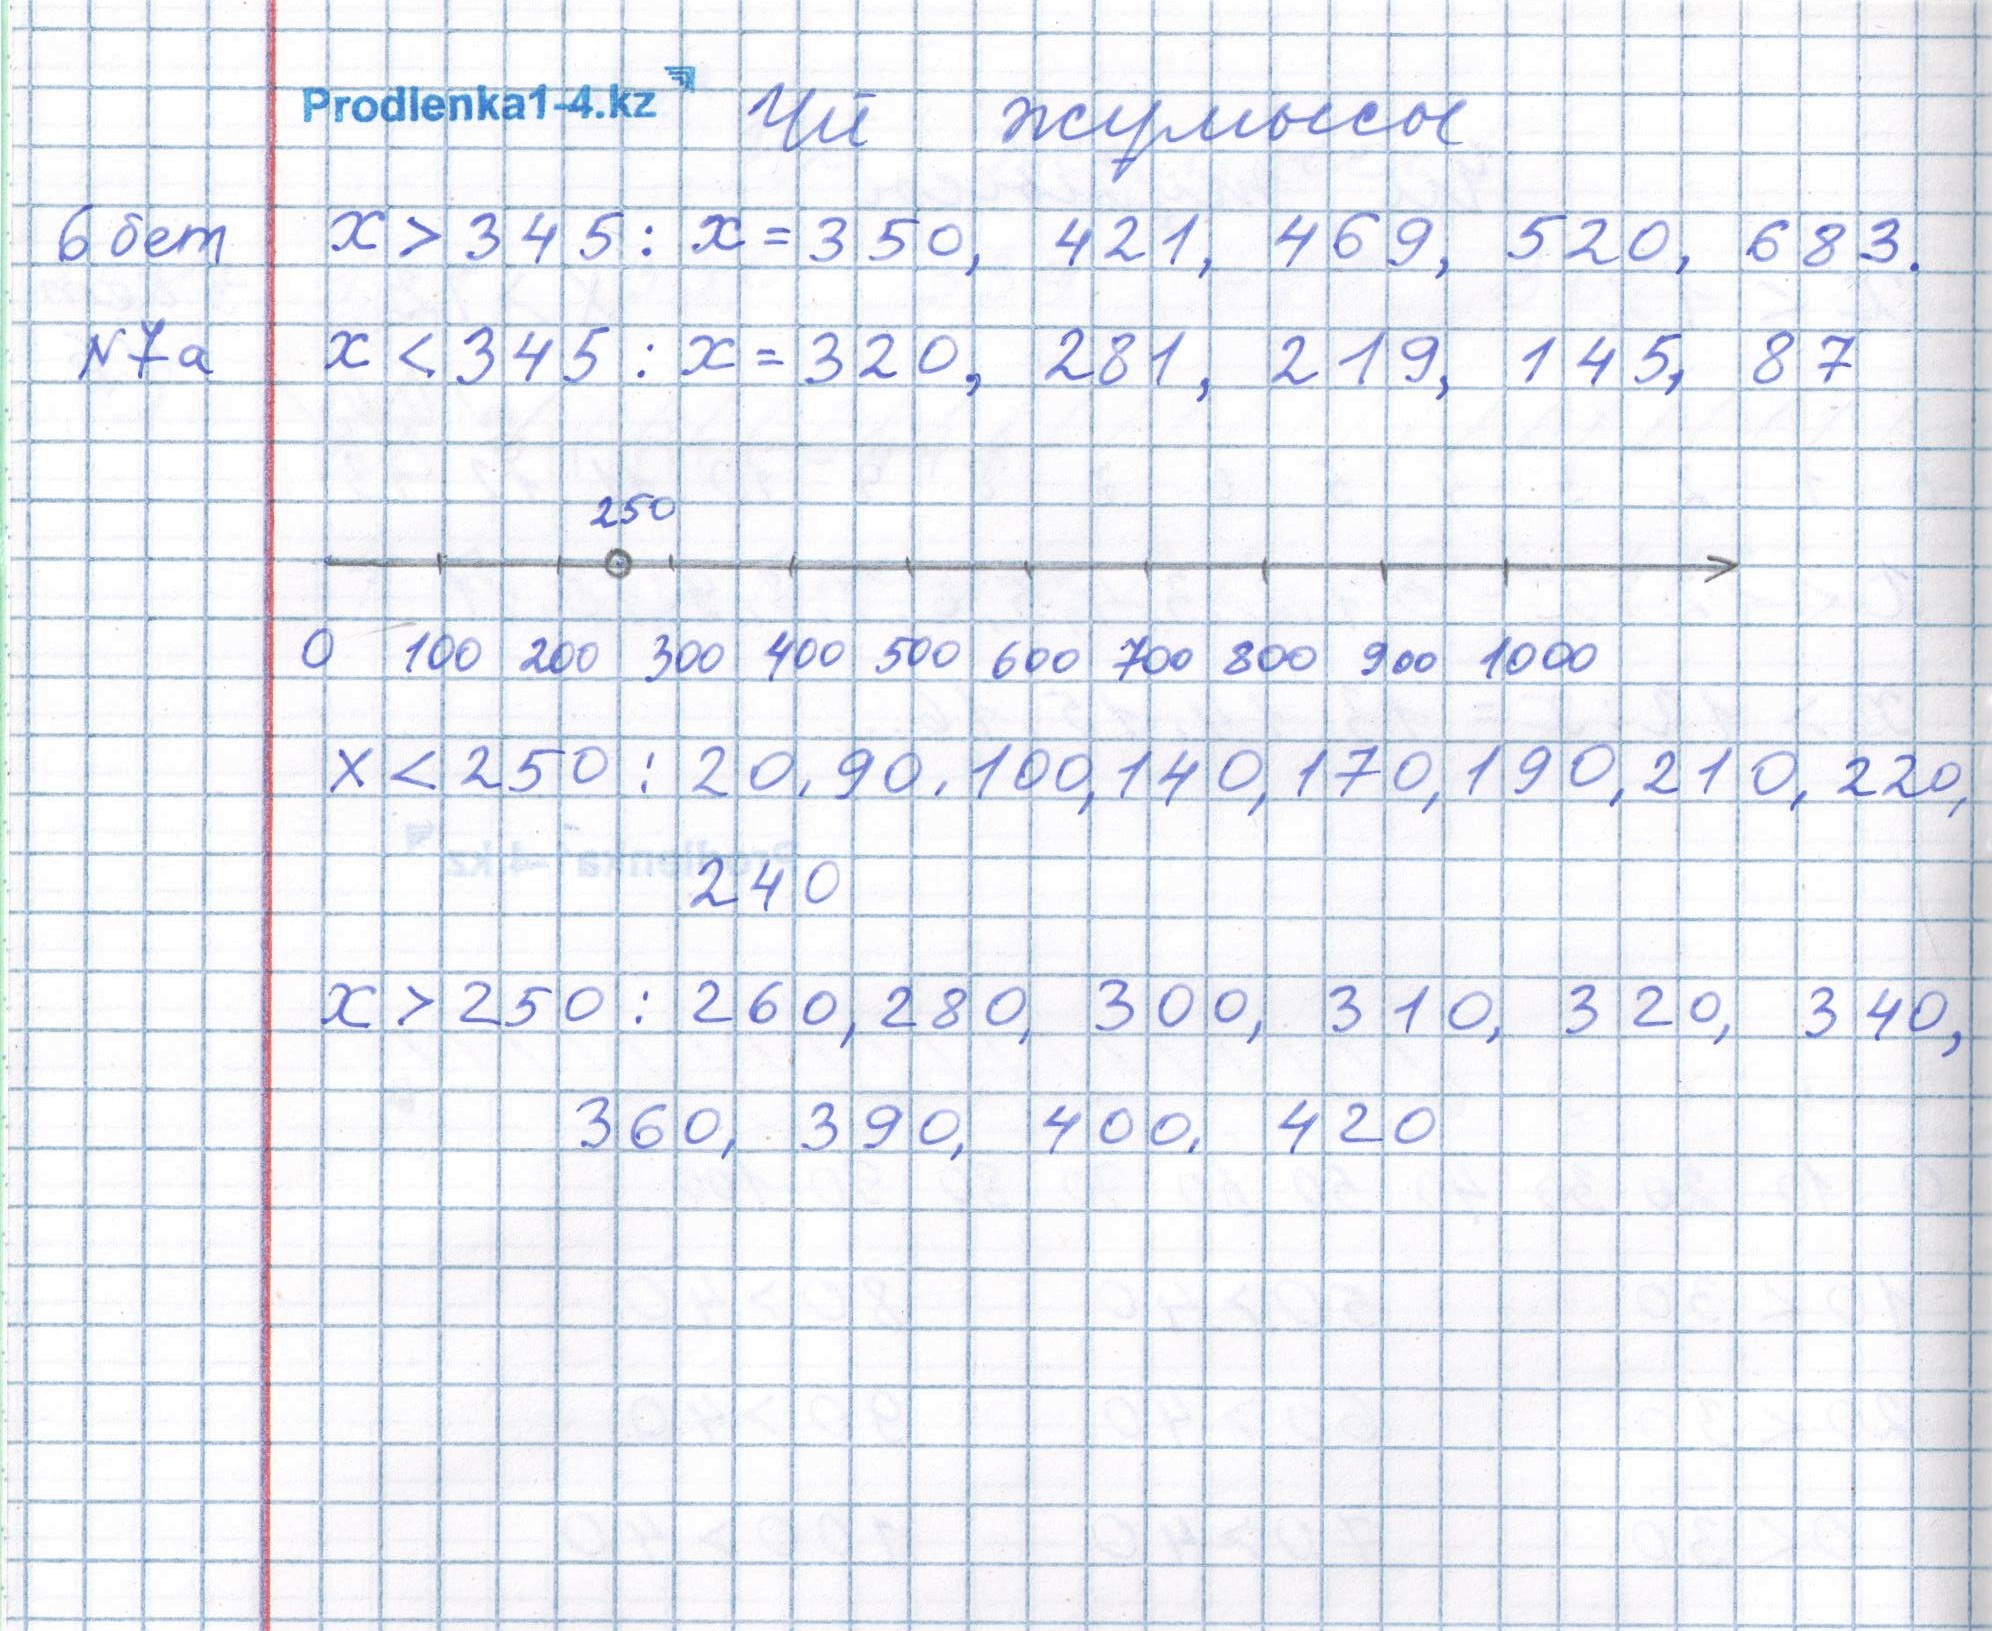 Prodlenka1-4.kz
Үй жұмысы
6 бет x > 345 : x = 350, 421, 469, 520, 683.
№7а x < 345 : x = 320, 281, 219, 145, 87
250
0 100 200 300 400 500 600 700 800 900 1000
x < 250 : 20, 90, 100, 140, 170, 190, 210, 220,
240
x > 250 : 260, 280, 300, 310, 320, 340,
360, 390, 400, 420